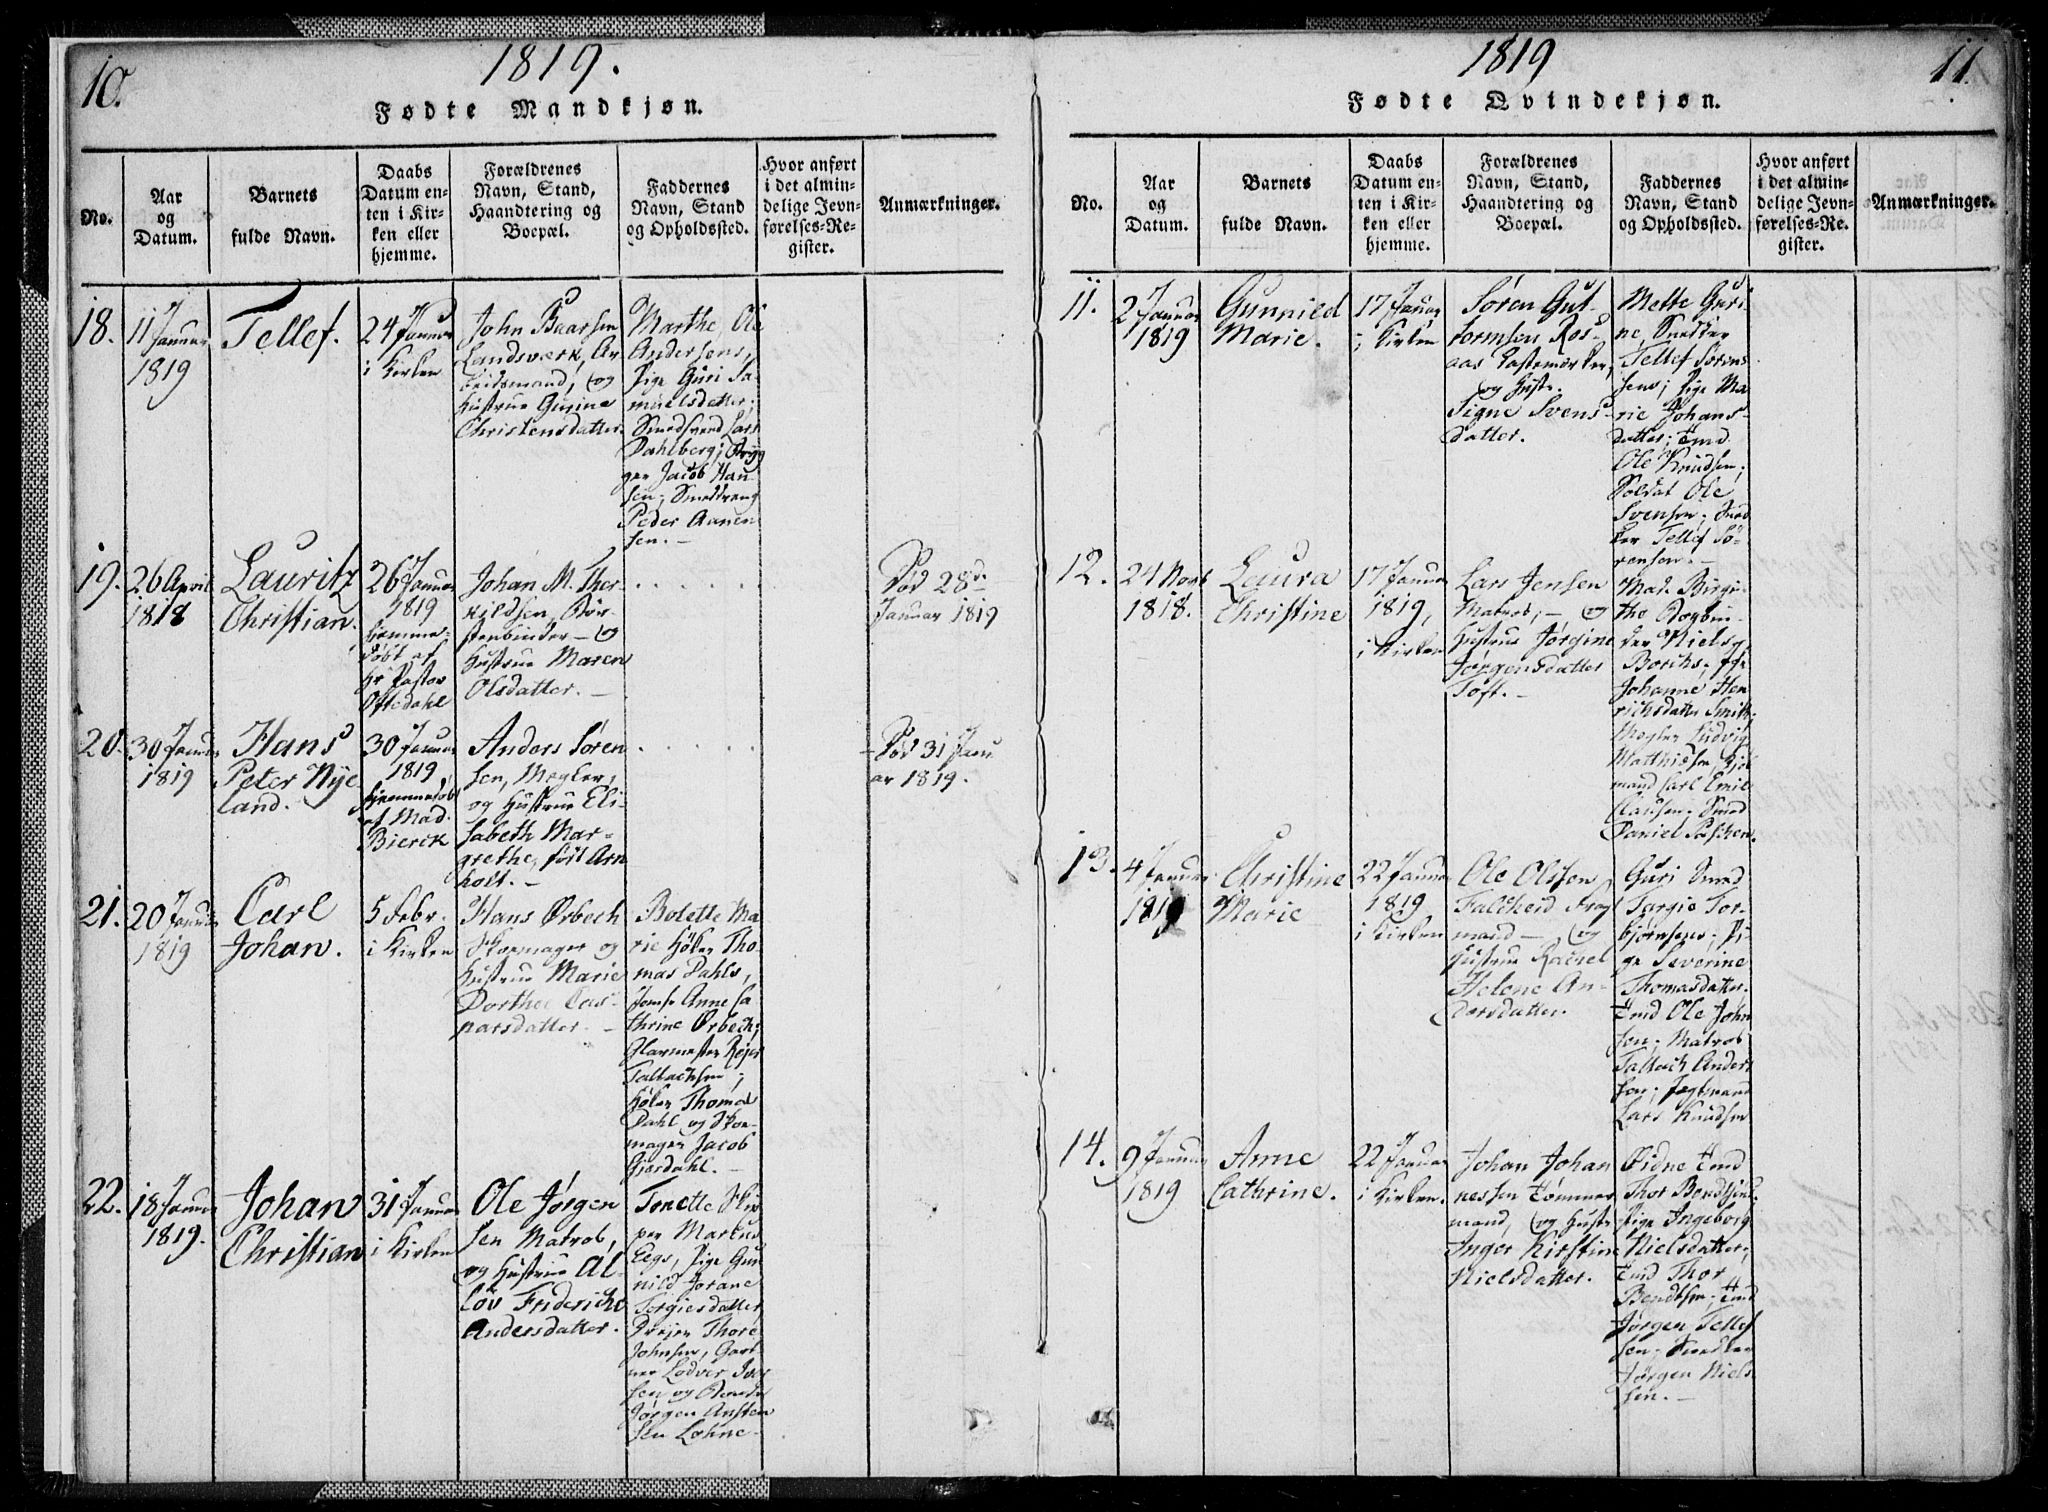 10.
1819.
Fødte Mandkjøn.
No.
Aar
og
Datum.
Barnets
fulde Navn.
Daabs
Datum en-
ten i Kir-
ken eller
hjemme.
Forældrenes
Navn, Stand,
Haandtering og
Boepæl.
Faddernes
Navn, Stand
og Opholdssted.
Hvor anført
i det almin-
delige Jevn-
førelses-Re-
gister.
Anmærkninger.
18.
11 Januar
1819
Tellef.
24 Januar
i Kirken
John Baarsen
Landsværk, Ar
beidsmand, og
Hustrue Gurine
Christensdatter.
Marthe Ole
Andersens,
Pige Guri Sa-
muelsdatter;
Smedsvend Lars
Dahlberg; Bryg
ger Jacob Han
sen; Smeddreng
Peder Aanen
sen. –
19.
26 April
1818
Lauritz
Christian.
26 Januar
1819
hjemme-
døbt af
Hr Pastor
Oftedahl
Johan M. Ther-
kildsen, Bør-
stenbinder – og
Hustrue Maren
Olsdatter. –
Død 28de
Januar 1819
20.
30 Januar
1819
Hans
Peter Nye
land.
30 Januar
1819
hjemmedøbt
af Mad.
Bierck
Anders Søren
sen, Mægler,
og Hustrue Eli-
sabeth Mar-
grethe, født Arn
holt. –
Død 31 Janu
ar 1819.
21.
20 Januar
1819
Carl
Johan.
5 Febr.
i Kirken
Hans Ørbech
Skomager og
Hustrue Marie
Dorthea Cas-
parsdatter. –
Bolette Ma
rie Høker Tho-
mas Dahls,
Jomfr Anne Ca
thrine Ørbech;
Glarmester Rejer
Tallachsen;
Høker Thomas
Dahl og Skoe-
mager Jacob
Giesdahl. –
22.
18 Januar
1819.
Johan
Christian
31 Januar
i Kirken
Ole Jørgen
sen Matros,
og Hustrue Al-
lov Frideriche
Andersdatter.
Tonette Skip
per Markus
Eegs, Pige Gun
nild Jorane
Torgiesdatter,
Drejer Thore
Johnsen, Gart
ner Lodver Iver
sen og
Jørgen Ansten
sen Lohne.
1819
11.
Fødte Qvindekjøn.
No.
Aar
og
Datum.
Barnets
fulde Navn.
Daabs
Datum en-
ten i Kir-
ken eller
hjemme.
Forældrenes
Navn, Stand,
Haandtering og
Boepæl.
Faddernes
Navn, Stand
og Opholdssted.
Hvor anført
i det almin-
delige Jevn-
førelses-Re-
gister.
Anmærkninger.
11.
2 Januar
1819
Gunnild
Marie.
17 Januar
i Kirken
Søren Gut-
tormsen Ros-
aas
og Hustr.
Signe Svens-
datter.
Mette Guri
ne, Snedker
Tellef Søren-
sens; Pige Ma
rie Johans-
datter; Tmd
Ole Knudsen;
Soldat Ole
Svensen; Sned
ker Tellef Sø-
rensen. –
12.
24 Novb
1818.
Laura
Christine
17 Januar
1819,
i Kirken
Lars Jensen
Matros, – og
Hustrue Jørgine
Jørgensdatter
Toft. –
Mad. Birgi-
the Bogbin-
der Niels
Borchs, Pige
Johanne Hen
richsdatter Smith;
Mægler Ludvig
Matthisen,
mand Carl Emil
Clausen; Smed
Daniel Paschen.
13.
4 Januar
1819
Christine
Marie
22 Januar
1819
i Kirken
Ole Olsen
Faldheid Frag
mand – og
Hustrue Rachel
Helene An-
dersdatter.
Guri Smed
Torgie Tor-
bjørnsens; Pi-
ge Severine
Thomasdatter.
Tmd Ole John
sen; Matros
Tallach Anders
sen; Jegtmand
Lars Knudsen
14.
9 Januar
1819
Anne
Cathrine.
22 Januar
i Kirken.
Johan Johan
nessen Tømmer
mand, og Hustr
Inger Kirstine
Nielsdatter.
Ødne Tmd
Thor Bendtsens;
Pige Ingeborg
Nielsdatter;
Tmd Thor
Bendtsen; Tmd
Jørgen Tellef
sen; Snedker
Jørgen Niels
sen. –